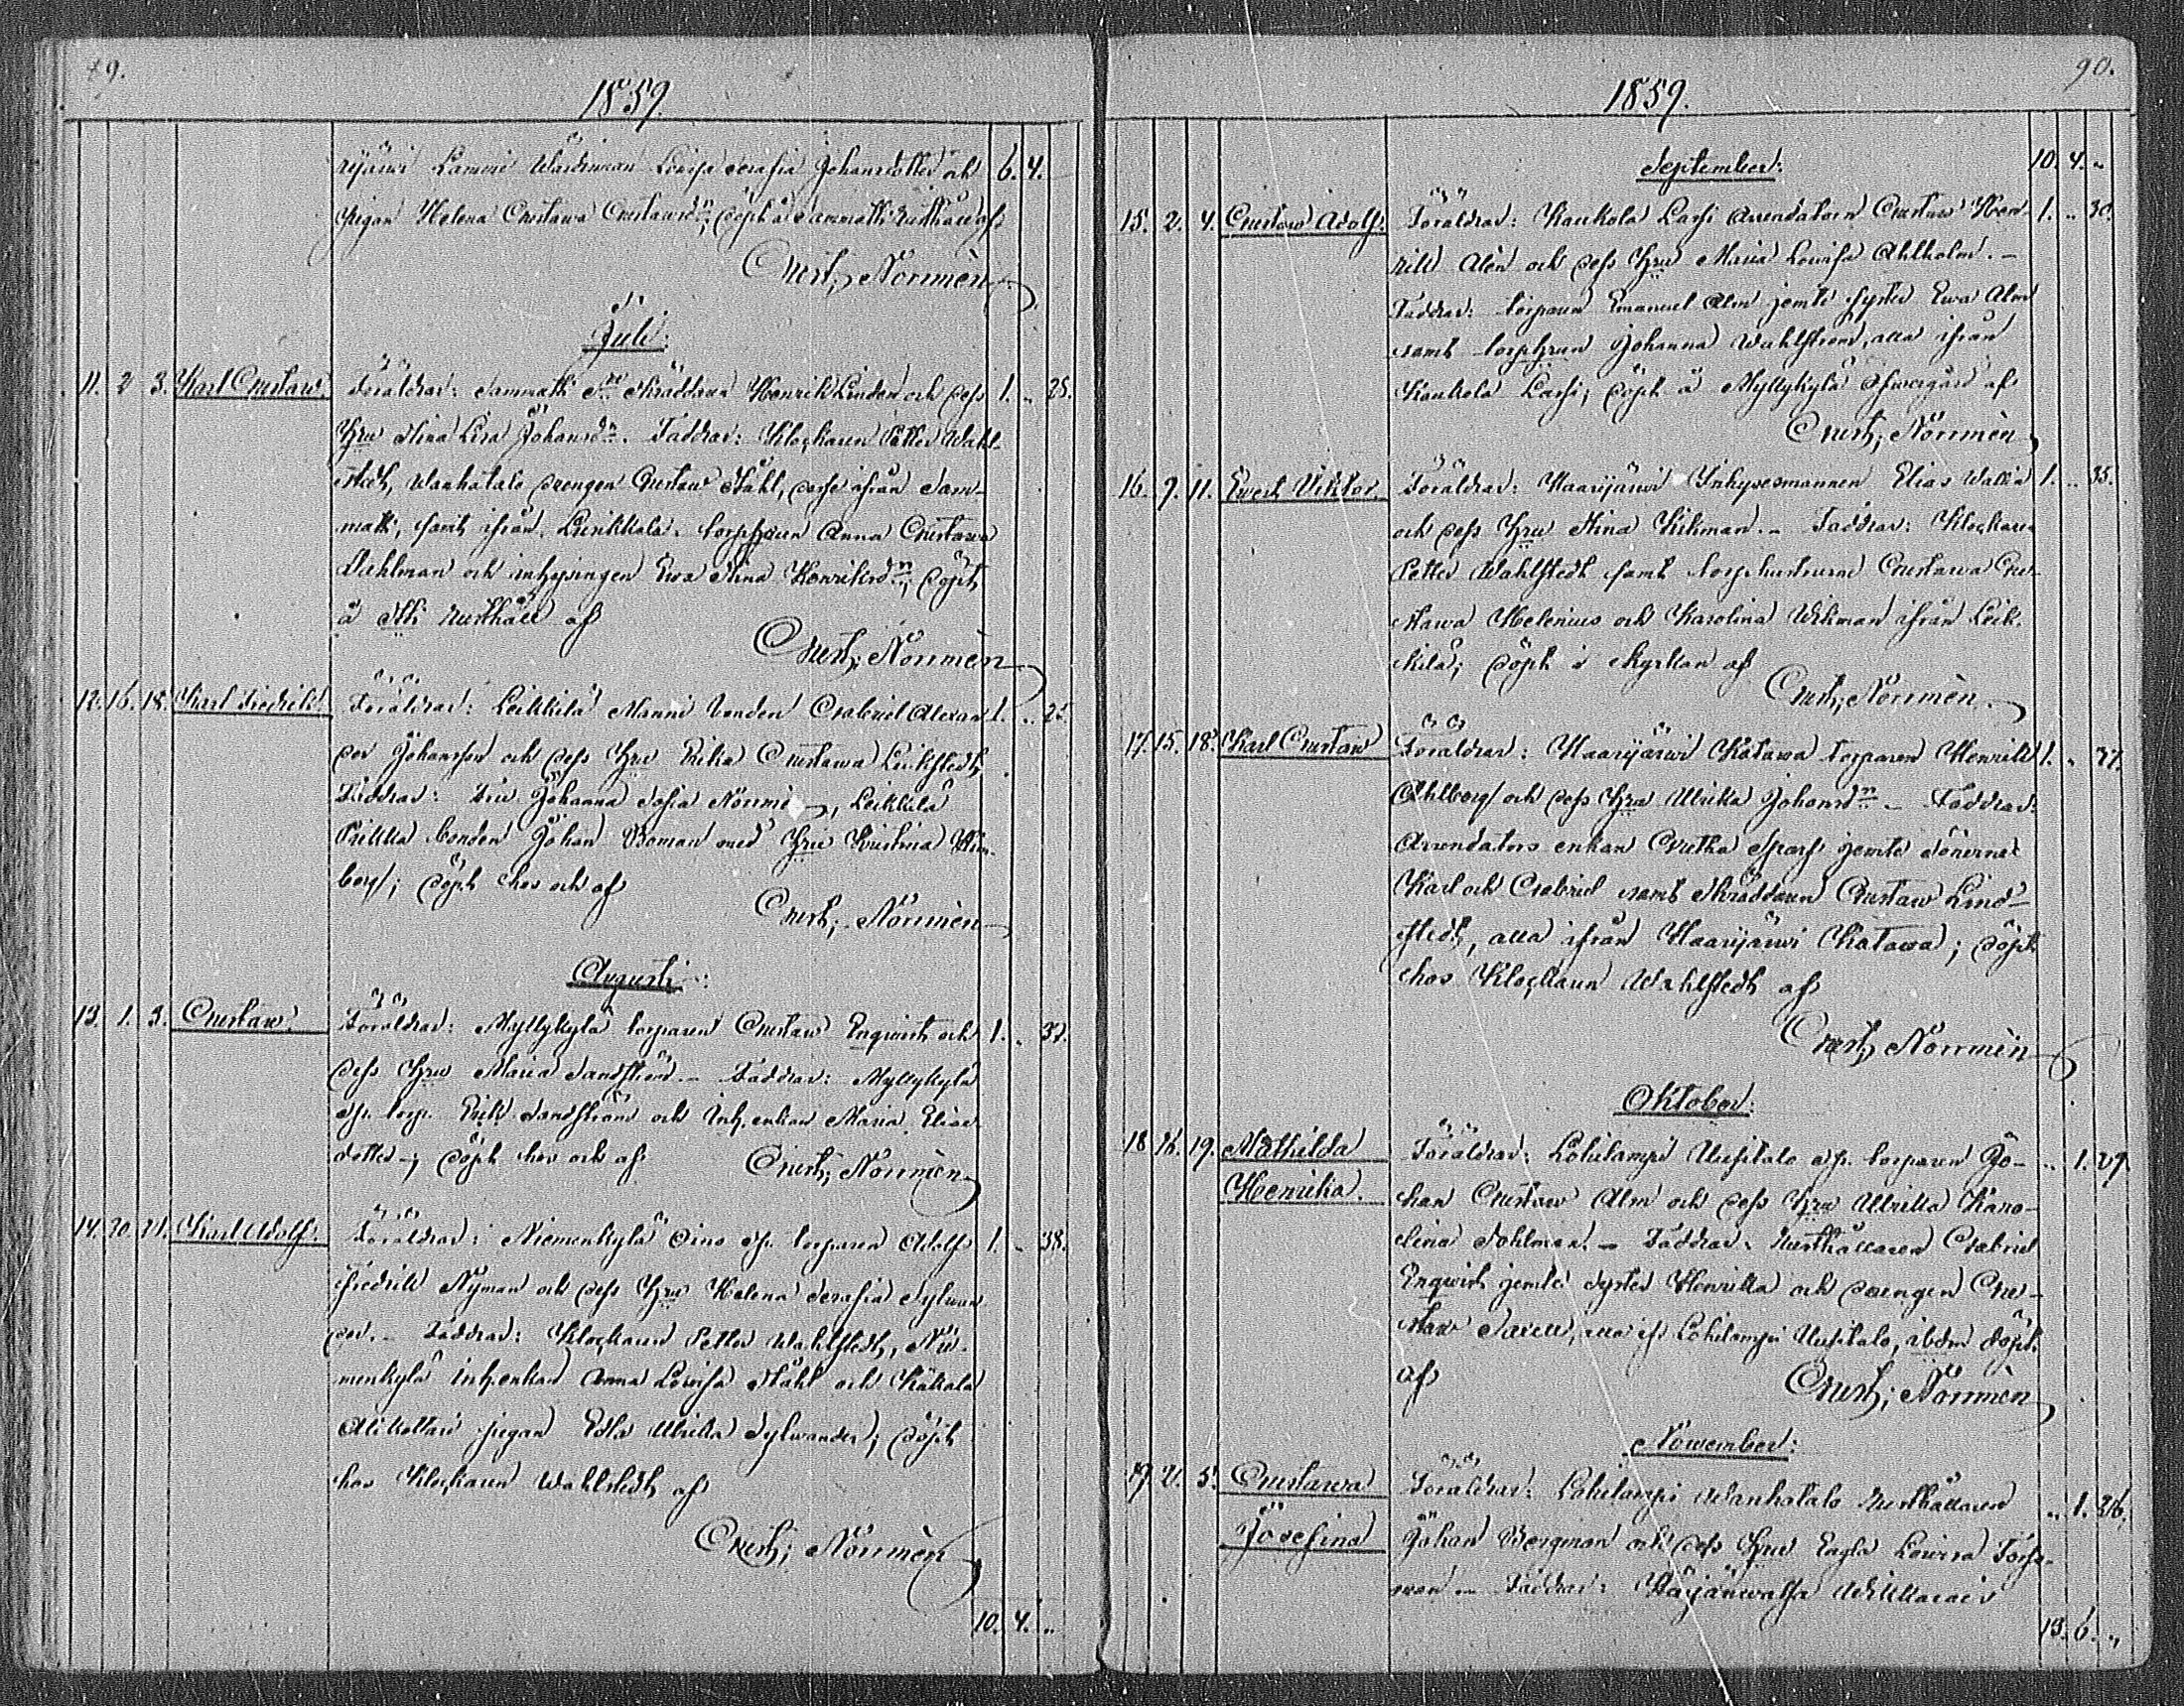 89.
1859.
ryärvi Lammi Waldman Lovisa Serafia Johansdotter och 6. 4.
Pigan Helena Gustawa Gustawsdn; döpt å Sammatti Rusthåll af
Gust: Norrmén
Juli:
11. 2. 3. Karl Gustaw. Föräldrar: Sammatti Sn Skräddaren Henrik Lindén och dess 1. „ 25.
Hru Stina Lisa Johansdn. Faddrar: Klockaren Petter Wahl-
stedt, Wanhatalo drengen Gustaw Ståhl, desse ifrån Sam-
matti, samt ifrån Luikkala torphrun Anna Gustawa
Dahlman och inhysingen Ewa Stina Henriksdn; döpt
å Sti rusthåll af
Gust: Norrmén
12. 16. 18. Karl Fredrik. Föräldrar: Leikkilä Manni bonden Gabriel Alexan- 1. „
der Johansson och dess Hru Erika Gustawa Leikstedt
Faddrar: Fru Johanna Sofia Norrmén, Leikkilä
Prikka bonden Johan Boman med Hru Kristina Wim-
berg; döpt hos och af
Gust: Norrmén
Augusti:
13. 1. 3. Gustaw. Föräldrar: Myllykylä torparen Gustaw Enqwist och 1. „ 37.
dess Hru Maria Sandström. – Faddrar: Myllykylä
Sp. torp. Erik Sandström och Inh. enkan Maria Elias-
dotter –; döpt hos och af Gust: Norrmén
14. 20. 21. Karl Adolf. Föräldrar: Niemenkylä Oino Sp. torparen Adolf 1. „ 38.
Fredrik Nyman och dess Hru Helena Serafia Sylwan-
der. – Faddrar: Klockaren Petter Wahlstedt, Nie-
menkylä inh enkan Anna Lovisa Ståhl och Käkälä
Alikottari pigan Edla Ulrika Sylwander; döpt
hos Klockaren Wahlstedt af
Gust: Norrmén
10. 4. „
90.
1859.
September: 10. 4. „
15. 2. 4. Gustaw Adolf. Föräldrar: Kaukola Lassi Arrendatorn Gustaw Hen- 1. „ 30.
rik Alén och dess Hru Maria Lovisa Ahlholm. –
Faddrar: torparen Emanuel Alm jemte syster Ewa Alm
samt torphrun Johanna Wahlström, alla ifrån
Kaukola Lassi; döpt å Myllykylä Öfwergård af
Gust: Norrmén
16. 9. 11. Ewert Viktor. Föräldrar: Haarijärwi Inhysesmannen Elias Wallin 1. „ 35.
och dess Hru Stina Wikman. – Faddrar: Klockaren
Petter Wahlstedt samt torphustrurna Gustawa Gu-
stawa Helenius och Karolina Wikman ifrån Leik-
kilä; döpt i kyrkan af
Gust: Norrmén.
17. 15. 18. Karl Gustaw Föräldrar: Haarijärwi Katawa torparen Henrik 1. „ 27.
Ahlberg och dess Hru Ulrika Johansdn – Faddrar:
Arrendators enkan Gretha Sparf jemte sönerna
Karl och Gabriel samt Skräddaren Gustaw Lind-
stedt, alla ifrån Haarijärwi Katawa; döpt
hos Klockaren Wahlstedt af
Gust: Norrmén
Oktober:
18. 16. 19. Mathilda Henrika. Föräldrar: Lohilampi Uusitalo Sp. torparen Jo- „ 1. 29.
han Gustaw Alm och dess Hru Ulrika Karo-
lina Sohlman. – Faddrar: Rusthållaren Gabriel
Enqwist jemte syster Henrika och drengen Gu-
staw Saxell, alla if. Lohilampi Uusitalo, ibdm döpt
af Gust: Norrmén
November:
19. 2. 5. Gustawa Josefina Föräldrar: Lohilampi Wanhatalo Rusthållaren „ 1. 26.
Johan Bergman och dess Hru Eugla Lovisa Forss-
man – Faddrar: Karjanwatsa
13. 6. „